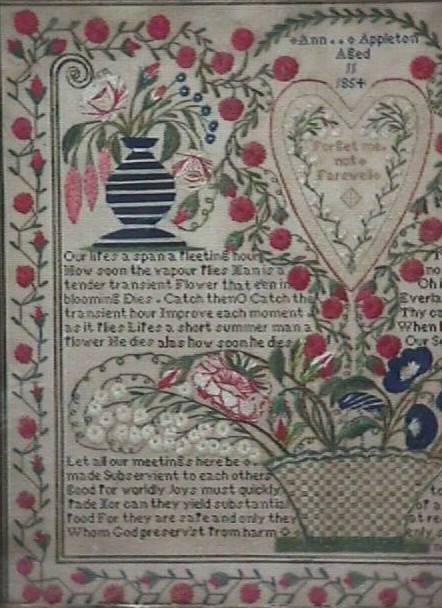 Ann Appleton
Aged
11
1854
Forget me
not
Farewell
Our lifes a span a fleeting hour
How soon the vapour flies Man is a
tender transient Flower that e'en in
blooming Dies - Catch then O Catch the
transient hour Improve each moment
as it flies Lifes a short summer man a
flower He dies alas how soon he dies
Oh
Everla
Thy
When
Our Se
Let all our meetings here be
made Subservient to each others
Good For worldly Joys must quickly
Fade Nor can they yield substantial
food For they are safe and only they
Whom God preserv'st From harm